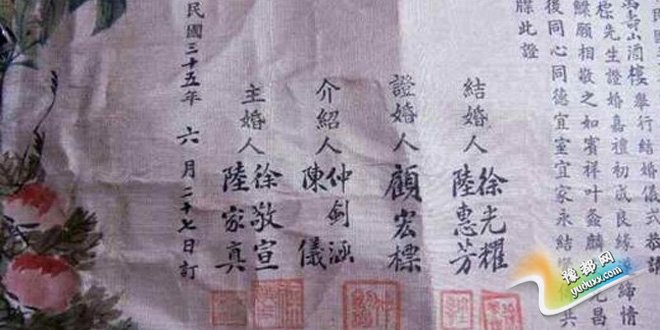 壽山酒樓舉行結婚儀式恭請
標先生證婚嘉禮初成良緣締情
鰈願相敬之如賓祥叶螽麟克昌
後同心同德宜室宜家永結共
牒此證
結婚人 徐光耀
陸惠芳
證婚人 顧宏標
介紹人 仲劍涵
陳儀
主婚人 徐敬宣
陸家真
民國三十五年 六月二十七日訂
豫都网
yuduxx.com